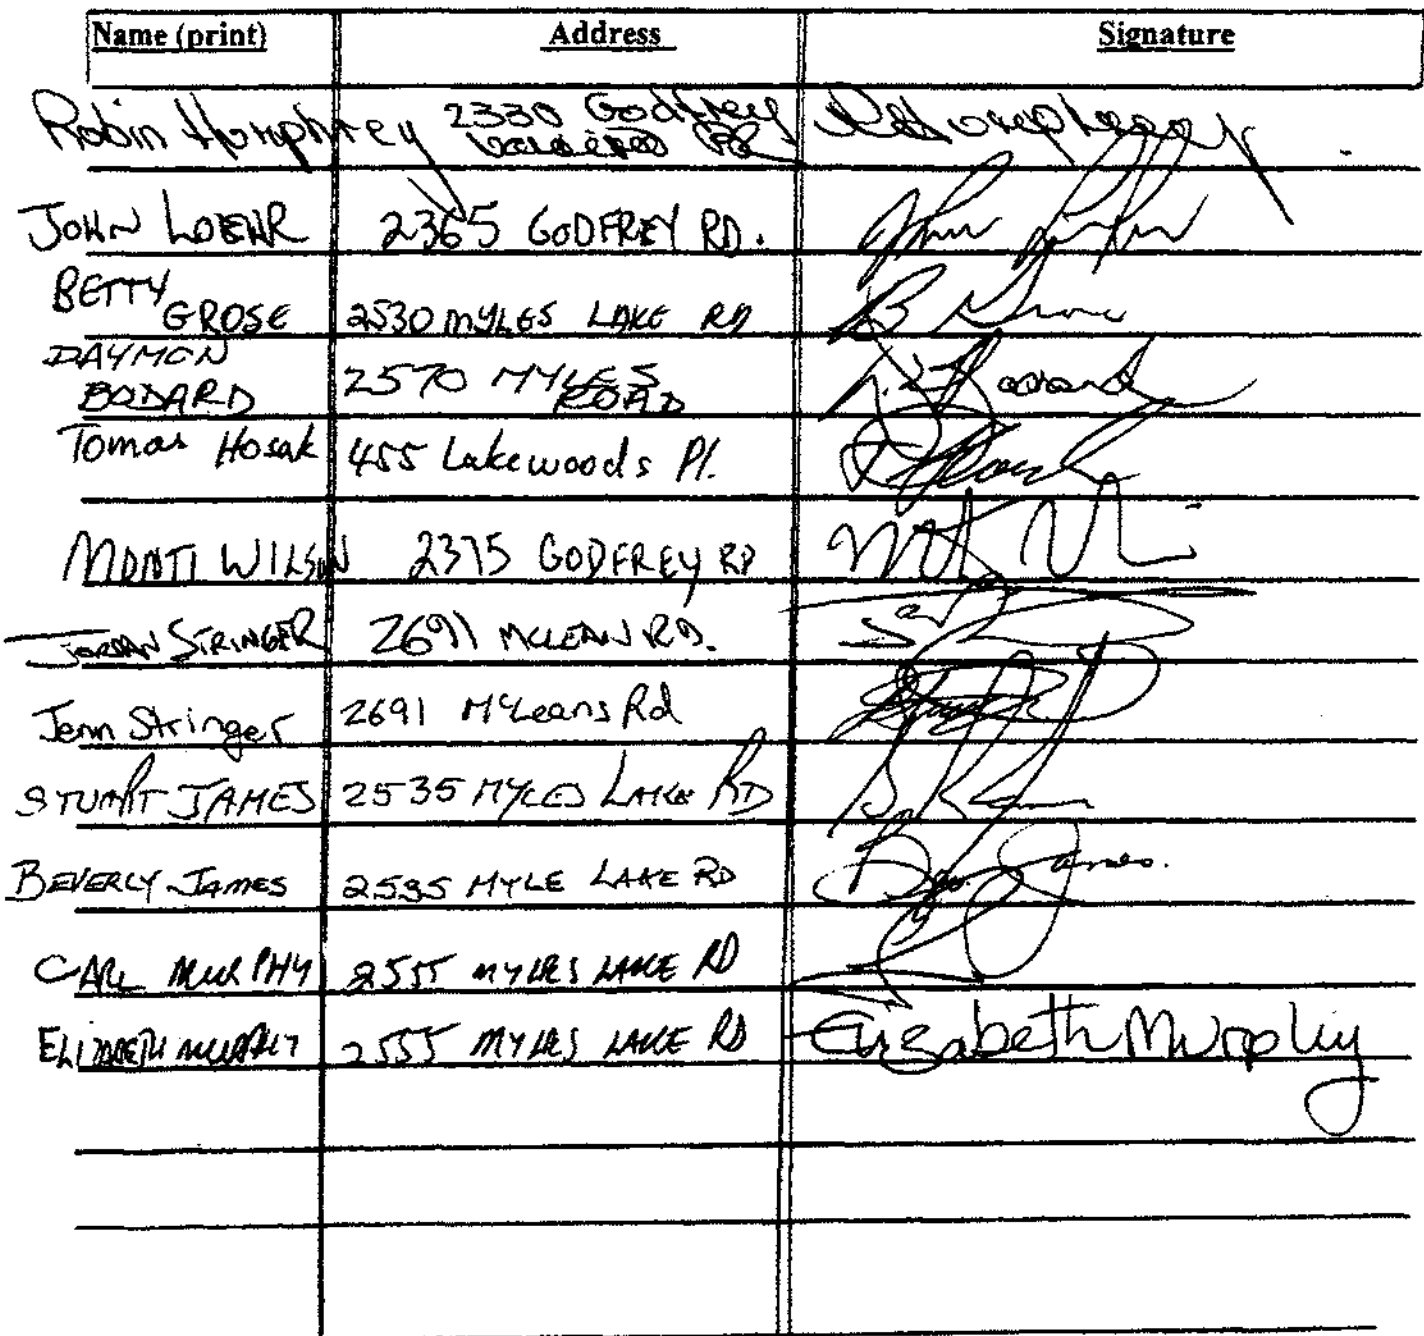 Name (print) Address Signature
Robin Humphrey 2330 Godfrey
JOHN LOEHR 2365 GODFREY RD.
BETTY
GROSE 2530 MYLES LAKE RD B Grose
DAYMON
BODARD 2570 MYLES
ROAD
Tomas Hosak 455 Lakewoods Pl.
MONTI WILSON 2375 GODFREY RD
JORDAN STRINGER 2691 MCLEAN RD.
Jenn Stringer 2691 McLeans Rd
STUART JAMES 2535 MYLES LAKE RD
BEVERLY JAMES 2535 MYLE LAKE RD Bev. James.
CARL MURPHY 2555 MYLES LAKE RD
ELIZABETH MURPHY 2555 MYLES LAKE RD Elizabeth Murphy